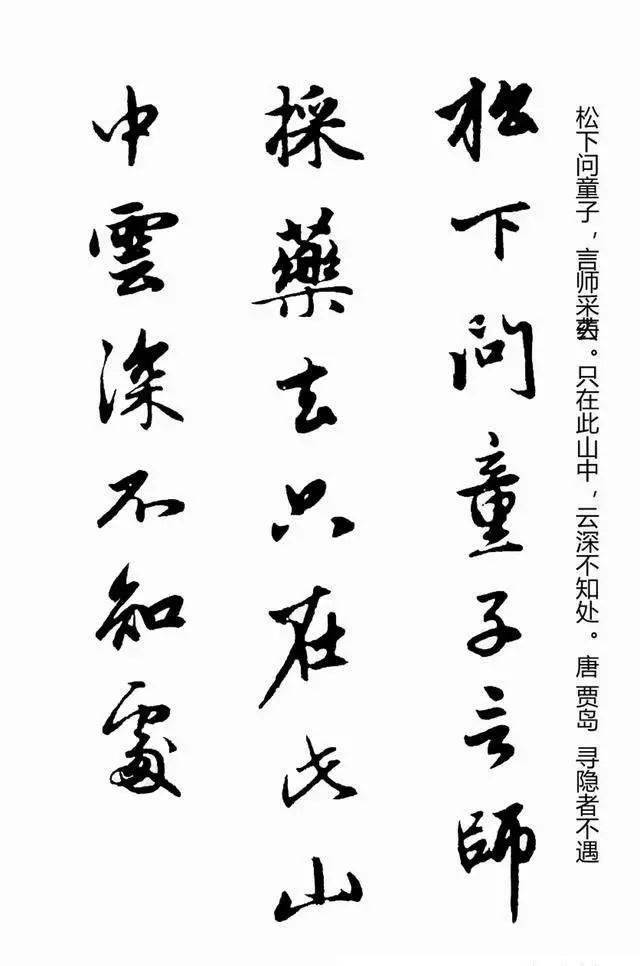 松下问童子，言师采药去。只在此山中，云深不知处。唐 贾岛 寻隐者不遇
松下问童子言師
採藥去只在此山
中雲深不知處